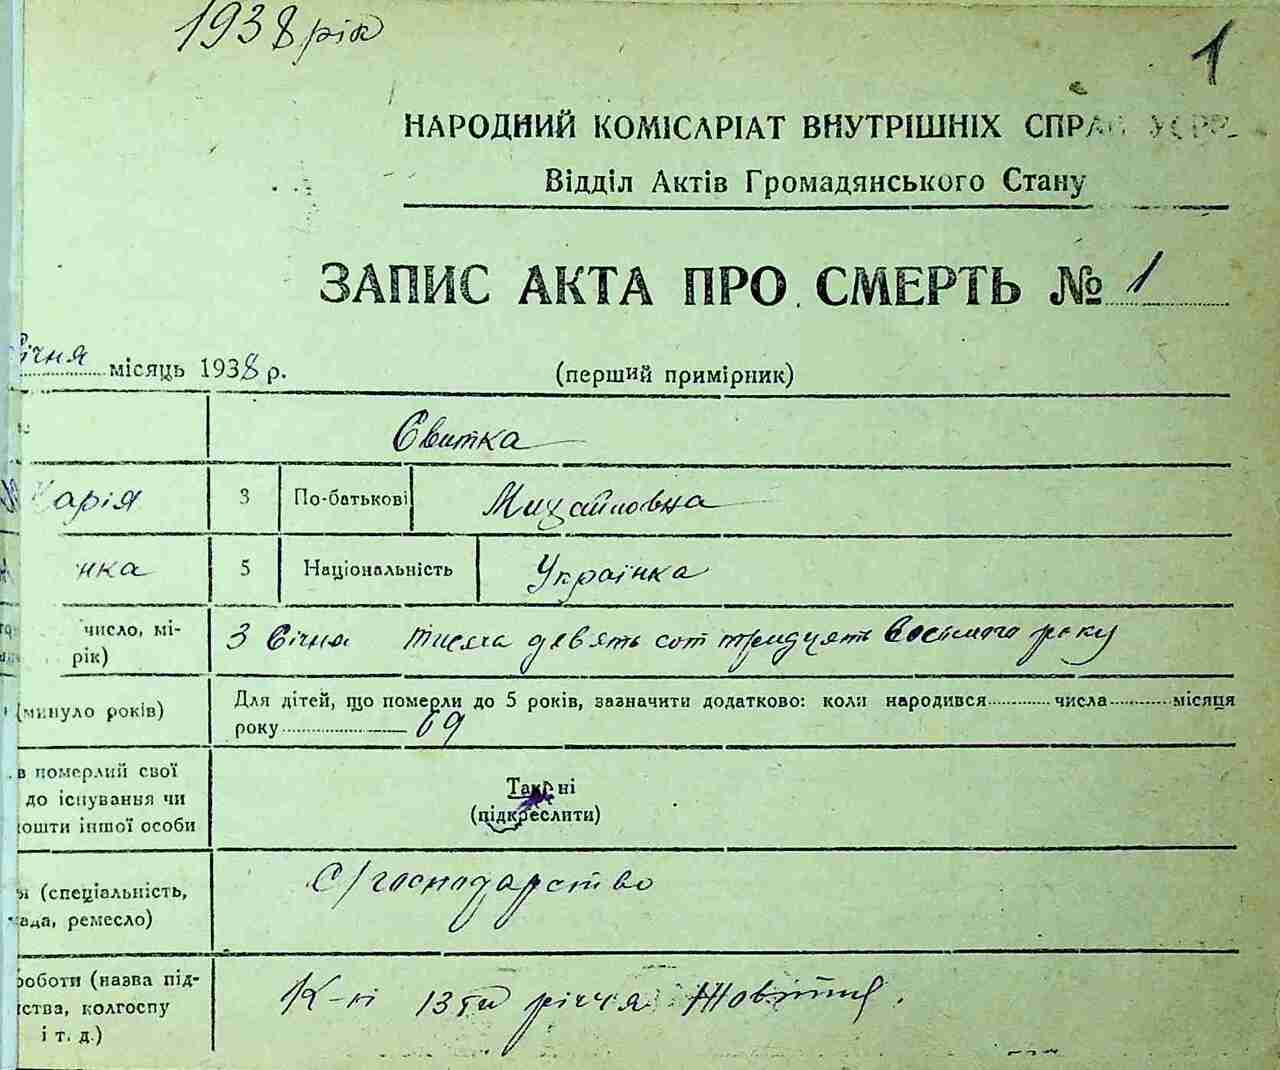 1938 рік
1
НАРОДНИЙ КОМІСАРІАТ ВНУТРІШНІХ СПРАВ УСРР
Відділ Актів Громадянського Стану
ЗАПИС АКТА ПРО СМЕРТЬ № 1
січня місяць 1938 р. (перший примірник)
Свитка
Марія 3 По-батькові Михайловна
нка 5 Національність Українка
число, мі-
рік)
3 Січня тисяча девять сот тридцять восьмого року
(минуло років)
Для дітей, що померли до 5 років, зазначити додатково: коли народився числа місяця
року 69
в померлий свої
до існування чи
кошти іншої особи
Так, ні
(підкреслити)
(спеціальність,
ремесло)
С/господарство
роботи (назва під-
ства, колгоспу
і т. д.)
К-п 13ти річчя Жовтня.